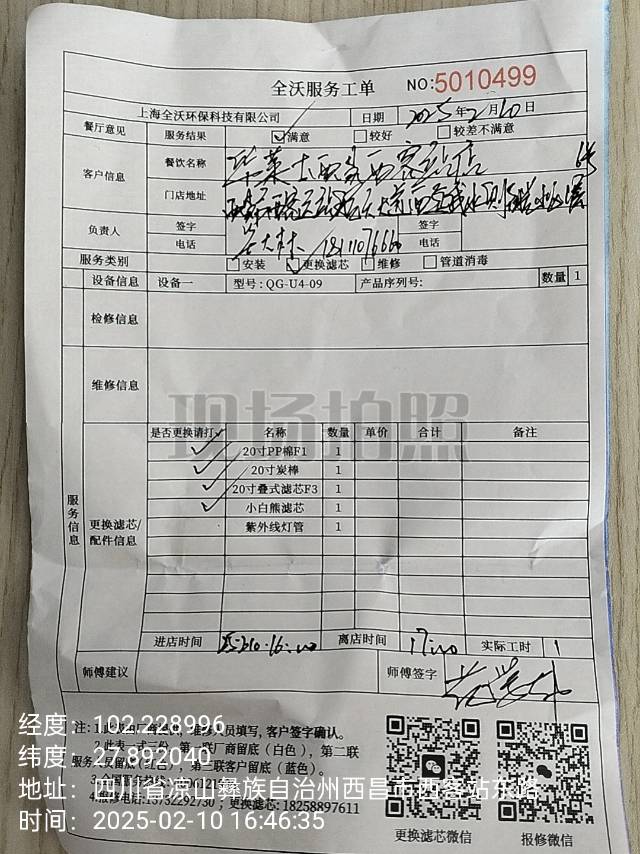 全沃服务工单 NO:5010499
上海全沃环保科技有限公司 日期 2025年2月10日
餐厅意见 服务结果 满意 较好 较差不满意
客户信息 餐饮名称 华莱士 西客站店
门店地址
负责人 签字 签字
电话 电话
服务类别 安装 更换滤芯 维修 管道消毒
设备信息 设备一 型号:QG-U4-09 产品序列号: 数量 1
检修信息
维修信息
现场拍照
是否更换请打✓ 名称 数量 单价 合计 备注
✓ 20寸PP棉F1 1
✓ 20寸炭棒 1
✓ 20寸叠式滤芯F3 1
✓ 小白熊滤芯 1
紫外线灯管 1
服务信息
更换滤芯/配件信息
进店时间 离店时间 17:00 实际工时 1
师傅建议 师傅签字
注:1.此表由厂商提供，维修人员填写，客户签字确认。
2.此表一式三份，第一联厂商留底（白色），第二联
服务人员留底，第三联客户留底（蓝色）。
4.服务电话:13732292730；更换滤芯:18258897611
更换滤芯微信 报修微信
经度：102.228996
纬度：27.892040
地址：四川省凉山彝族自治州西昌市西客站东路
时间：2025-02-10 16:46:35